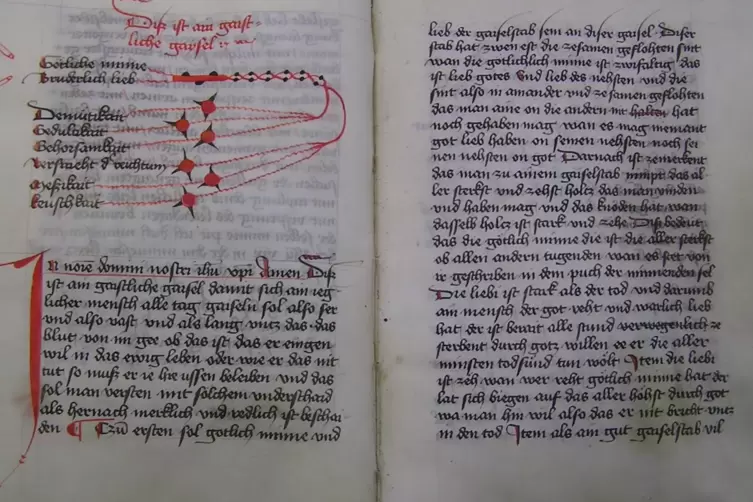 Diß ist ain gaist-
liche gaisel
Götliche minne
Brüderlich lieb
Demütikait
Gedultikait
Gehorsamkait
Versmeht d' reichtum
Mesikait
keuschkait
In noīe domini nostri ihū xpi Amen Diß
ist ain gaistliche gaisel damit sich ain ieg
licher mensch alle tag gaiseln sol also ser
und also vast und als lang vntz das das
blůt von im gee ob das ist das er eingen
wil in das ewig leben oder wie er das nit
tut so můß er ie hie ussen beleiben und das
sol man versten mit solchem underschaid
als hernach merklich und redlich ist beschai
den Czů ersten sol gotlich minne und
lieb der gaiselstab sein an diser gaisel Diser
stab hat zwen est die zesamen geflohten sint
wan die gotlichlich minne ist zwifaltig das
ist lieb gotes Vnd lieb des nehsten und die
sint also in ainander und zesamen geflohten
das man aine on die andern nit halten hat
noch gehaben mag wan es mag niemant
got lieb haben on seinen nehsten noch sei
nen nehsten on got Darnach ist zemerkent
das man zu ainem gaiselstab nimpt das al
ler sterkst und zehst holcz das man vinden
und haben mag und das knöden hat wan
dasselb holcz ist stark und zehe Diß bedeut
das die götlich minne die ist die aller sterkst
ob allen andern tugenden wan es stet von
ir geschriben in dem puch der minnenden sel
Die liebi ist stark als der tod und darumb
ain mensch der got reht und warlich lieb
hat der ist berait alle stund verwegenlich ze
sterbent durch gotz willen ee er die aller
minsten todsünd tun wölt Item die liebi
ist zeh wan wer reht götlich minne hat der
lat sich biegen auf das aller böhst durch got
wa man hin wil also das er nit bricht vntz
in den tod Item als ain gut gaiselstab vil